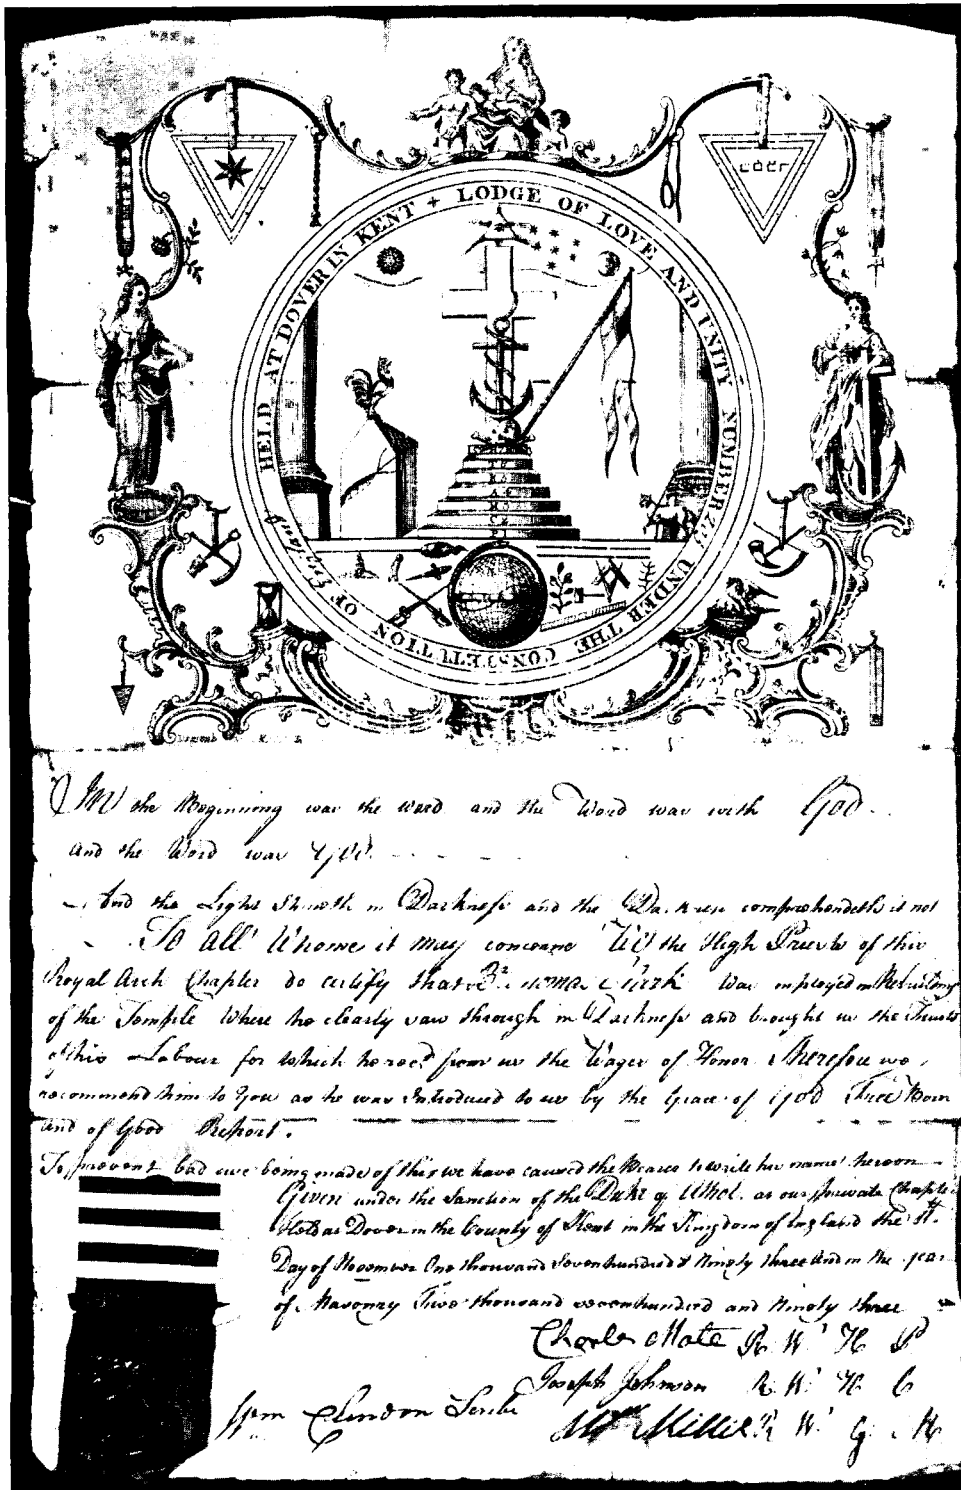 LODGE OF LOVE AND UNITY NUMBER UNDER THE CONSTITUTION OF England HELD AT DOVER IN KENT +
In the Beginning was the word and the Word was with God
And the Word was God
And the Light Shineth in Darkness and the Darkness comprehendeth it not
To All Whome it May concerne We the High Priests of this
Royal Arch Chapter do certify that Br Clark Was employed in Rebuilding
of the Temple Where he clearly saw through in Darkness and brought us the Fruits
of his Labour for which he recd from us the Wages of Honor Therefore we
recommend him to You as he was Introduced to us by the Grace of God Free Born
and of Good Report.
To prevent bad use being made of this we have caused the Bearer to write his name hereon
Given under the Sanction of the Duke of Athol. at our private Chapter
Held at Dover in the County of Kent in the Kingdom of England the
Day of November One thousand Seven hundred & Ninety three And in the year
of Masonry Five thousand seven hundred and Ninety three
Charles Mate R W H P
Joseph Johnson R W H C
Wm Clendon Scribe
Wm Miller R W G H